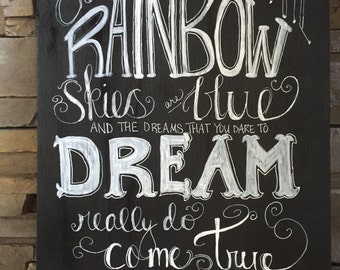 RAINBOW
skies are blue
AND THE DREAMS THAT YOU DARE TO
DREAM
really do
come true